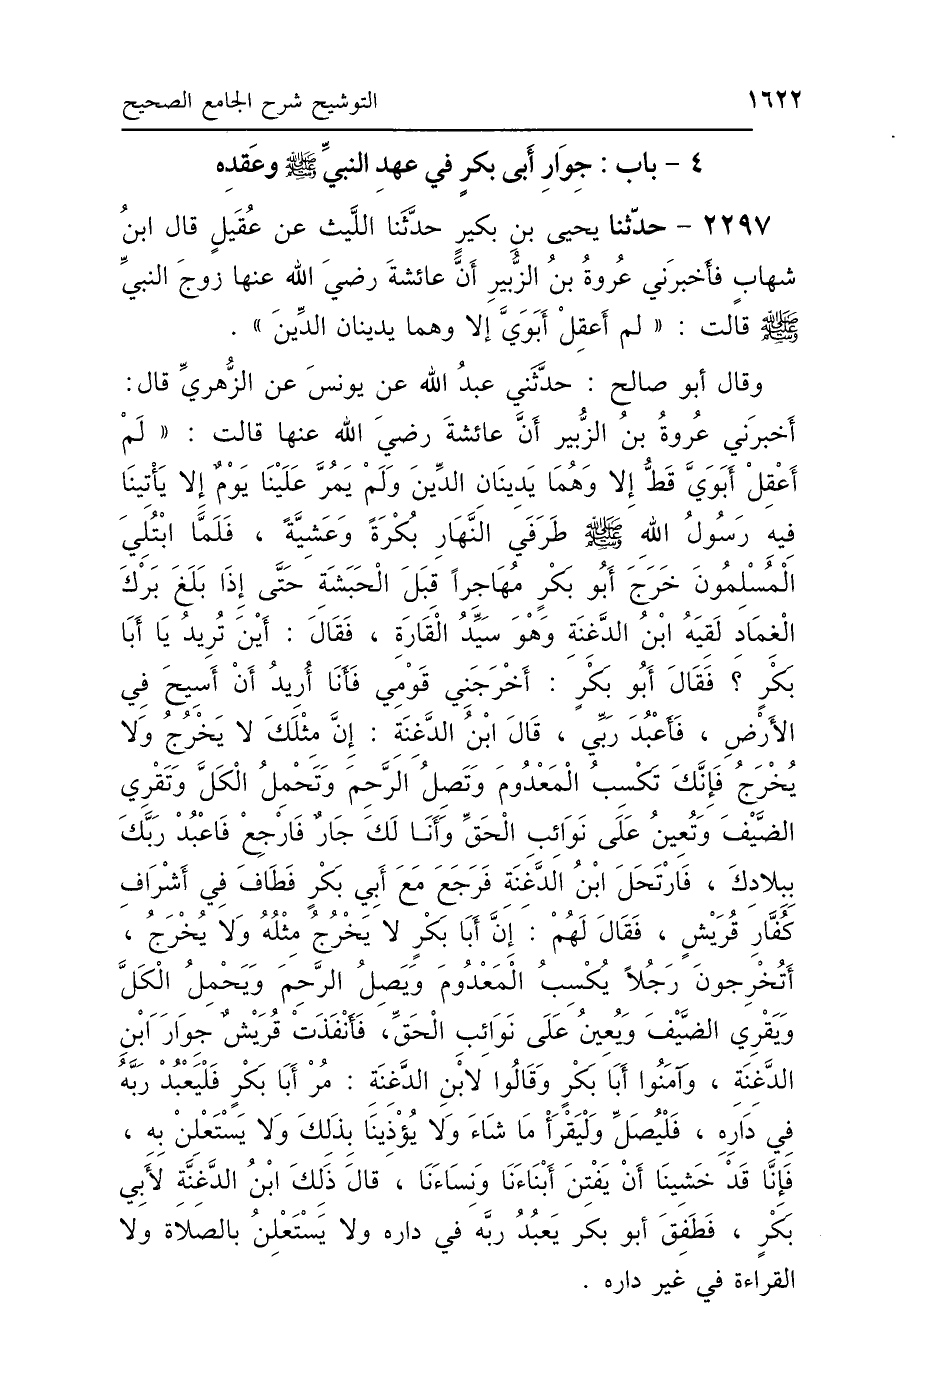 ١٦٢٢ التوشيح شرح الجامع الصحيح
٤ - باب : جِوَارِ أَبى بكرٍ في عهدِ النبيِّ ﷺ وعَقدِه
٢٢٩٧ - حدّثنا يحيى بنِ بكيرٍ حدَّثَنا اللَّيث عن عُقَيلٍ قال ابنُ
شهابٍ فأَخبرَني عُروةُ بنُ الزُّبيرِ أَنَّ عائشةَ رضيَ الله عنها زوجَ النبيِّ
ﷺ قالت : « لم أَعقِلْ أَبَوَيَّ إلا وهما يدينان الدِّينَ » .
وقال أبو صالح : حدَّثَني عبدُ الله عن يونسَ عن الزُّهريِّ قال :
أَخبرَني عُروةُ بنُ الزبيرِ أَنَّ عائشةَ رضيَ الله عنها قالت : « لَمْ
أَعْقِلْ أَبَوَيَّ قَطُّ إلا وَهُمَا يَدِينَانِ الدِّينَ وَلَمْ يَمُرَّ عَلَيْنَا يَوْمٌ إِلا يَأْتِينَا
فِيهِ رَسُولُ الله ﷺ طَرَفَي النَّهَارِ بُكْرَةً وَعَشِيَّةً ، فَلَمَّا ابْتُلِيَ
الْمُسْلِمُونَ خَرَجَ أَبُو بَكْرٍ مُهَاجِراً قِبَلَ الْحَبَشَةِ حَتَّى إِذَا بَلَغَ بَرْكَ
الْغِمَادِ لَقِيَهُ ابْنُ الدَّغِنَةِ وَهْوَ سَيِّدُ الْقَارَةِ ، فَقَالَ : أَيْنَ تُرِيدُ يَا أَبَا
بَكْرٍ ؟ فَقَالَ أَبُو بَكْرٍ : أَخْرَجَنِي قَوْمِي فَأَنَا أُرِيدُ أَنْ أَسِيحَ فِي
الأَرْضِ ، فَأَعْبُدَ رَبِّي ، قَالَ ابْنُ الدَّغِنَة : إِنَّ مِثْلَكَ لا يَخْرُجُ وَلا
يُخْرَجُ فَإِنَّكَ تَكْسِبُ الْمَعْدُومَ وَتَصِلُ الرَّحِمَ وَتَحْمِلُ الْكَلَّ وَتَقْرِي
الضَّيْفَ وَتُعِينُ عَلَى نَوَائِبِ الْحَقِّ وَأَنَا لَكَ جَارٌ فَارْجِعْ فَاعْبُدْ رَبَّكَ
بِبِلادِكَ ، فَارْتَحَلَ ابْنُ الدَّغِنَةِ فَرَجَعَ مَعَ أَبِي بَكْرٍ فَطَافَ فِي أَشْرَافِ
كُفَّارِ قُرَيْشٍ ، فَقَالَ لَهُمْ : إِنَّ أَبَا بَكْرٍ لا يَخْرُجُ مِثْلُهُ وَلا يُخْرَجُ ،
أَتُخْرِجونَ رَجُلاً يُكْسِبُ الْمَعْدُومَ وَيَصِلُ الرَّحِمَ وَيَحْمِلُ الْكَلَّ
وَيَقْرِي الضَّيْفَ وَيُعِينُ عَلَى نَوَائِبِ الْحَقِّ، فَأَنْفَذَتْ قُرَيْشٌ جِوَارَ ابْنِ
الدَّغِنَةِ ، وَآمَنُوا أَبَا بَكْرٍ وَقَالُوا لابْنِ الدَّغِنَةِ : مُرْ أَبَا بَكْرٍ فَلْيَعْبُدْ رَبَّهُ
فِي دَارِهِ ، فَلْيُصَلِّ وَلْيَقْرَأْ مَا شَاءَ وَلا يُؤْذِينَا بِذَلِكَ وَلا يَسْتَعْلِنْ بِهِ ،
فَإِنَّا قَدْ خَشِينَا أَنْ يَفْتِنَ أَبْنَاءَنَا وَنِسَاءَنَا ، قالَ ذَلِكَ ابنُ الدَّغِنَّةِ لأَبي
بَكْرٍ ، فَطَفِقَ أبو بكر يَعبُدُ ربَّه في داره ولا يَسْتَعْلِنُ بالصلاة ولا
القراءة في غير داره .